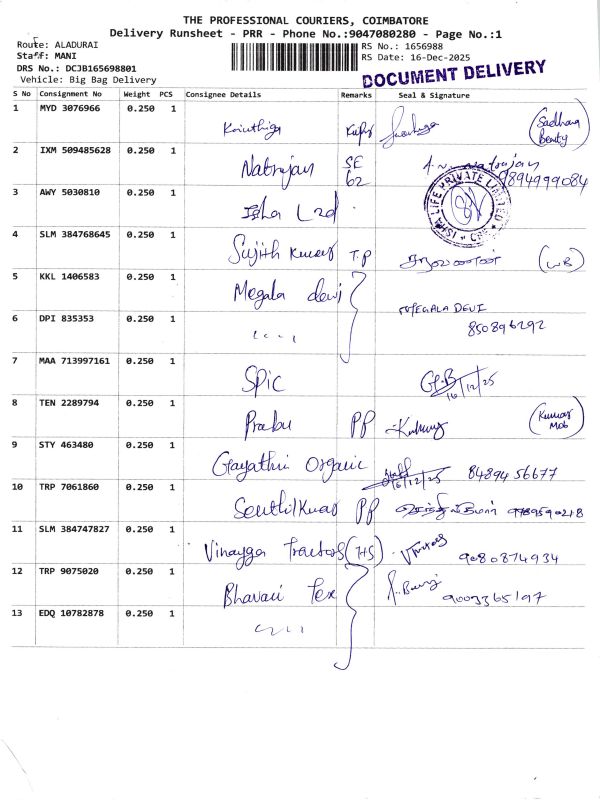 THE PROFESSIONAL COURIERS, COIMBATORE
Delivery Runsheet - PRR - Phone No.:9047080280 - Page No.:1
Route: ALADURAI
Staff: MANI
DRS No.: DCJB165698801
Vehicle: Big Bag Delivery
RS No.: 1656988
RS Date: 16-Dec-2025
DOCUMENT DELIVERY
S No Consignment No Weight PCS Consignee Details Remarks Seal & Signature
1 MYD 3076966 0.250 1 (Sadhana Beauty)
2 IXM 509485628 0.250 1 Natrajan SE 62 A.N. Natrajan 9894999084
3 AWY 5030810 0.250 1 Isha LIFE PRIVATE LIMITED
4 SLM 384768645 0.250 1 Sujith Kumar T.P (WB)
5 KKL 1406583 0.250 1 Megala devi MEGALA DEVI
6 DPI 835353 0.250 1 850896292
7 MAA 713997161 0.250 1 Spic 16/12/25
8 TEN 2289794 0.250 1 Prabu PP (Kumar Mob)
9 STY 463480 0.250 1 Gayathri Organic Staff 16/12/25 84894 56677
10 TRP 7061860 0.250 1 Senthilkumar PP செந்தில்குமார் 9789590218
11 SLM 384747827 0.250 1 Vinayga Tractors (HS) 9080874934
12 TRP 9075020 0.250 1 Bhavani Tex 9003365197
13 EDQ 10782878 0.250 1